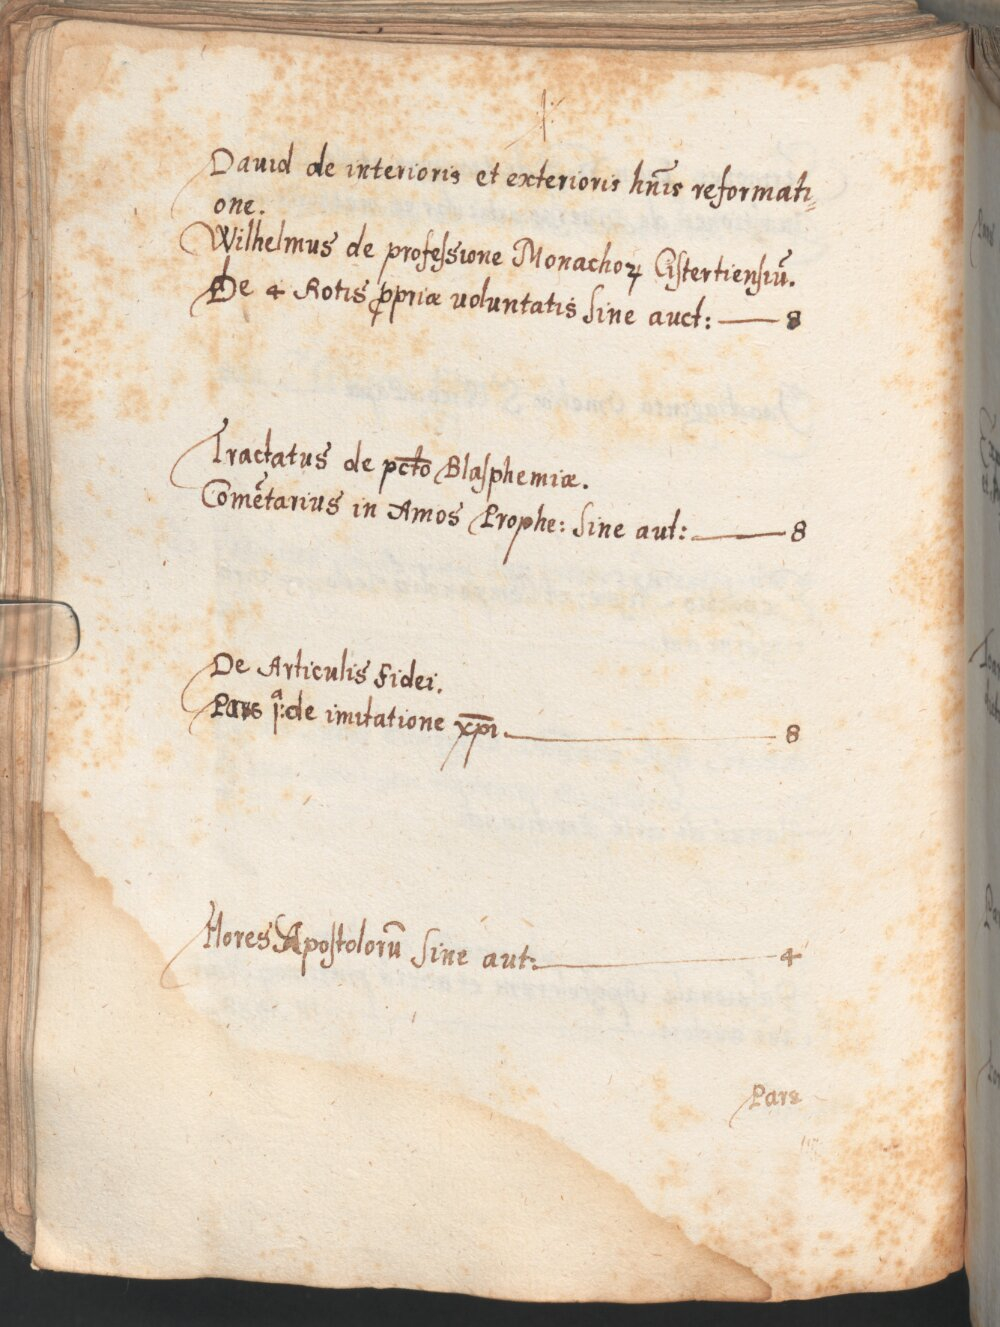 I:
Dauid de interioris et exterioris hn̄is reformati=
one.
Wilhelmus de professione Monachoꝝ Cistertiensiū.
De 4 Rotis ꝓpriæ uoluntatis sine auct: — 8
Tractatus de pct̄o Blasphemiæ.
Com̄etarius in Amos Prophe: sine aut: — 8
De Articulis Fidei.
Pars j:ᵃ de imitatione xp̄i. — 8
Flores Apostolorū sine aut: — 4
Pars